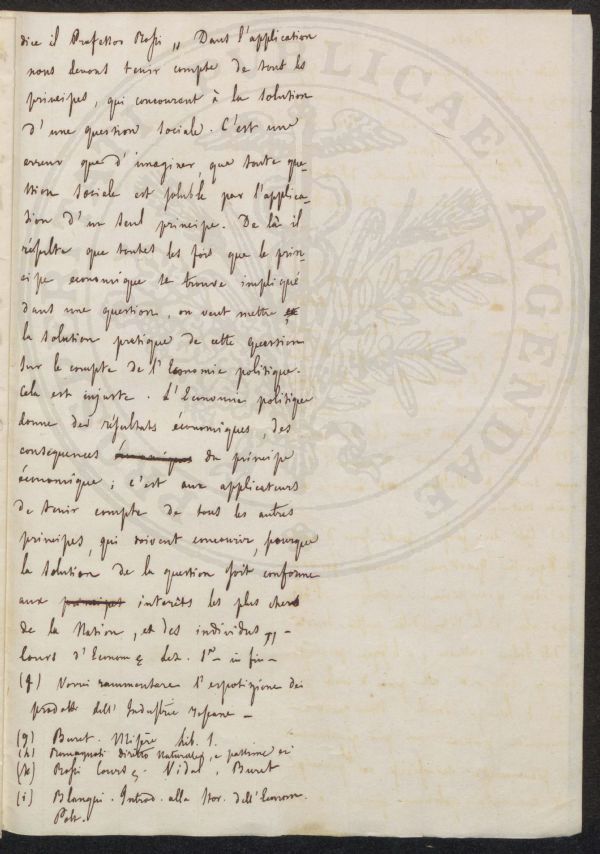 dice il Professor Rossi „ Dans l'application
nous devons tenir compte de tous les
principes, qui concourent à la solution
d'une question sociale. C'est une
erreur que d'imaginer, que toute que-
stion sociale est soluble par l'applica-
tion d'un seul principe. De là il
résulte que toutes les fois que le prin-
cipe economique se trouve impliqué
dans une question, on veut mettre
la solution pratique de cette question
sur le compte de l'Economie politique.
Cela est injuste. L'Economie politique
donne des résultats économiques, des
consequences du principe
économique; c'est aux applicateurs
de tenir compte de tous les autres
principes, qui doivent concourir, pourque
la solution de la question soit conforme
aux principes interèts les plus chers
de la Nation, et des individus „ -
Cours d'Econom Lez. 1.re in fin -
(f) Vorrei rammentare l'esposizione dei
prodotti dell' Industrie Toscane -
(g) Buret. Misère Lib. 1.
(h) Romagnosi diritto naturale, e
(k) Rossi Cours. Vidal, Buret
(i) Blanqui. Introd. alla Stor. dell'Econom.
Polt.
PUBLICAE AVGENDAE